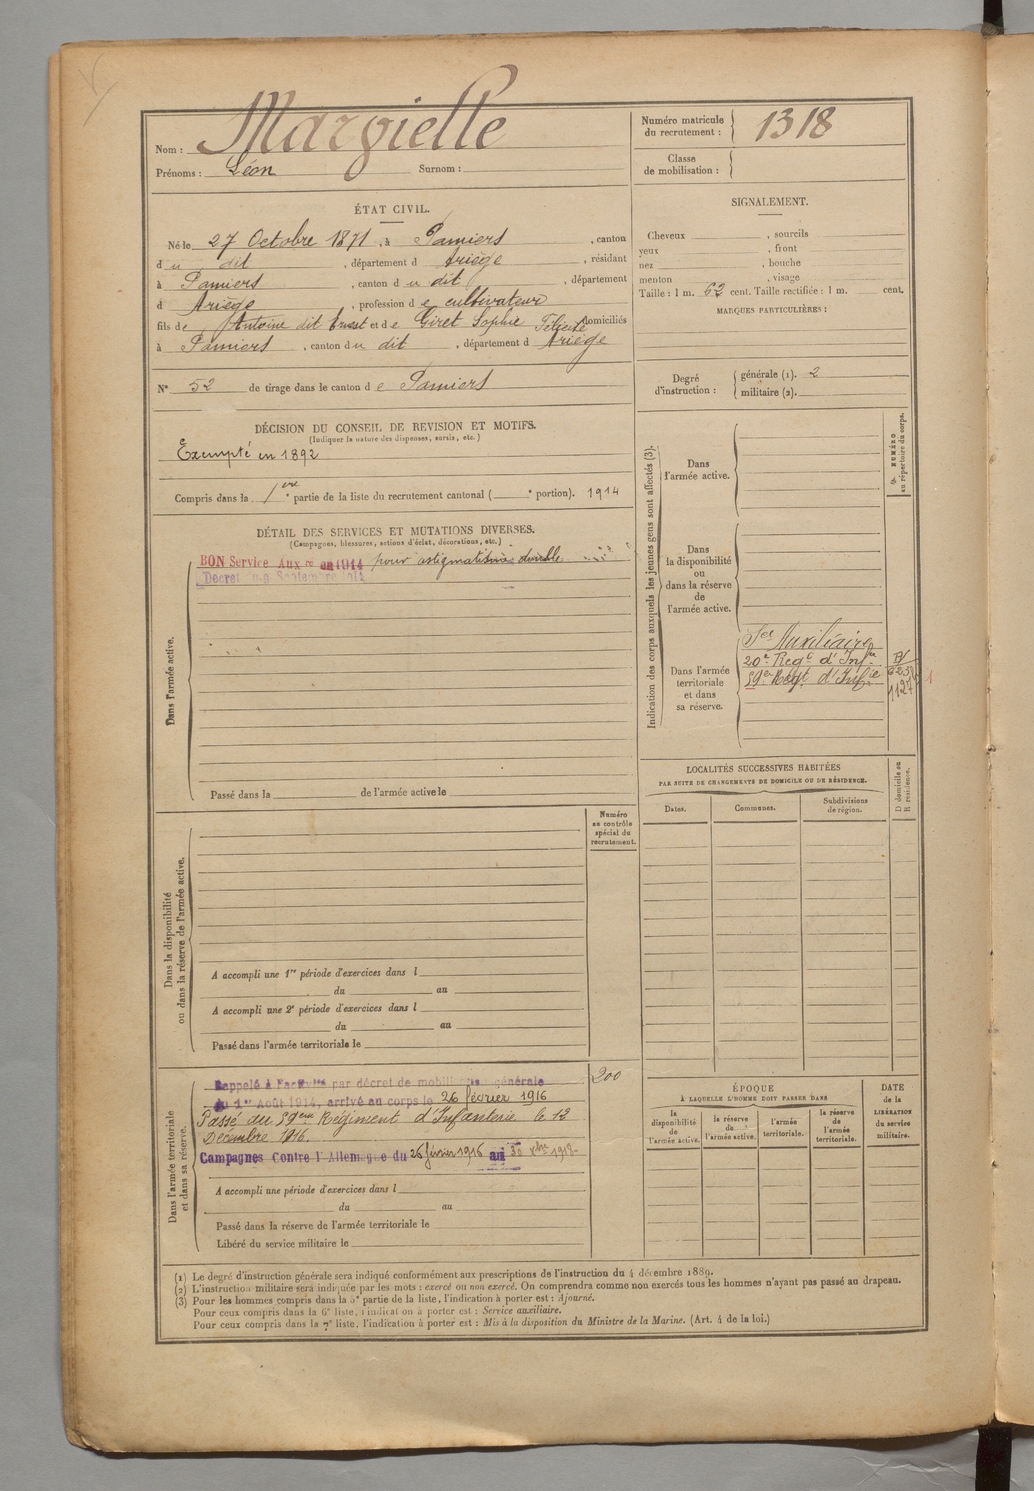 Nom : Margielle
Prénoms : Léon Surnom :
Numéro matricule du recrutement : 1318
Classe de mobilisation :
ÉTAT CIVIL.
Né le 27 Octobre 1871, à Pamiers, canton
du dit, département d Ariège, résidant
à Pamiers, canton du dit, département
d Ariège, profession de cultivateur
fils de Antoine dit Ernest et de Giret Sophie Félicité domiciliés
à Pamiers, canton du dit, département d Ariège
N° 52 de tirage dans le canton de Pamiers
SIGNALEMENT.
Cheveux , sourcils
yeux , front
nez , bouche
menton , visage
Taille : 1 m. 62 cent. Taille rectifiée : 1 m. cent.
MARQUES PARTICULIÈRES :
Degré d'instruction : générale (1). 2
militaire (2).
DÉCISION DU CONSEIL DE REVISION ET MOTIFS.
(Indiquer la nature des dispenses, sursis, etc.)
Exempté en 1892
Compris dans la 1re partie de la liste du recrutement cantonal ( e portion). 1914
DÉTAIL DES SERVICES ET MUTATIONS DIVERSES.
(Campagnes, blessures, actions d'éclat, décorations, etc.)
BON Service Aux re en 1914 pour astigmatisme double
Décret Septembre 1914
Dans l'armée active.
Passé dans la de l'armée active le
Indication des corps auxquels les jeunes gens sont affectés (3).
NUMÉRO au répertoire du corps.
Dans l'armée active.
Dans la disponibilité ou dans la réserve de l'armée active.
Dans l'armée territoriale et dans sa réserve.
Sce Auxiliaire
20e Regt d'Infie
59e Regt d'Infie
1127
LOCALITÉS SUCCESSIVES HABITÉES
PAR SUITE DE CHANGEMENTS DE DOMICILE OU DE RÉSIDENCE.
Dates. Communes. Subdivisions de région.
D domicile ou R résidence.
Numéro au contrôle spécial du recrutement.
Dans la disponibilité ou dans la réserve de l'armée active.
A accompli une 1re période d'exercices dans l
du au
A accompli une 2e période d'exercices dans l
du au
Passé dans l'armée territoriale le
200
Dans l'armée territoriale et dans sa réserve.
Rappelé à l'activité par décret de mobilisation générale
du 1er Août 1914, arrivé au corps le 26 février 1916
Passé au 59eme Régiment d'Infanterie le 12
Décembre 1916.
Campagnes Contre l'Allemagne du 26 février 1916 au
A accompli une période d'exercices dans l
du au
Passé dans la réserve de l'armée territoriale le
Libéré du service militaire le
ÉPOQUE
À LAQUELLE L'HOMME DOIT PASSER DANS
la disponibilité de l'armée active.
la réserve de l'armée active.
l'armée territoriale.
la réserve de l'armée territoriale.
DATE de la LIBÉRATION du service militaire.
(1) Le degré d'instruction générale sera indiqué conformément aux prescriptions de l'instruction du 4 décembre 1889.
(2) L'instruction militaire sera indiquée par les mots : exercé ou non exercé. On comprendra comme non exercés tous les hommes n'ayant pas passé au drapeau.
(3) Pour les hommes compris dans la 5e partie de la liste, l'indication à porter est : Ajourné.
Pour ceux compris dans la 6e liste, l'indication à porter est : Service auxiliaire.
Pour ceux compris dans la 7e liste, l'indication à porter est : Mis à la disposition du Ministre de la Marine. (Art. 4 de la loi.)